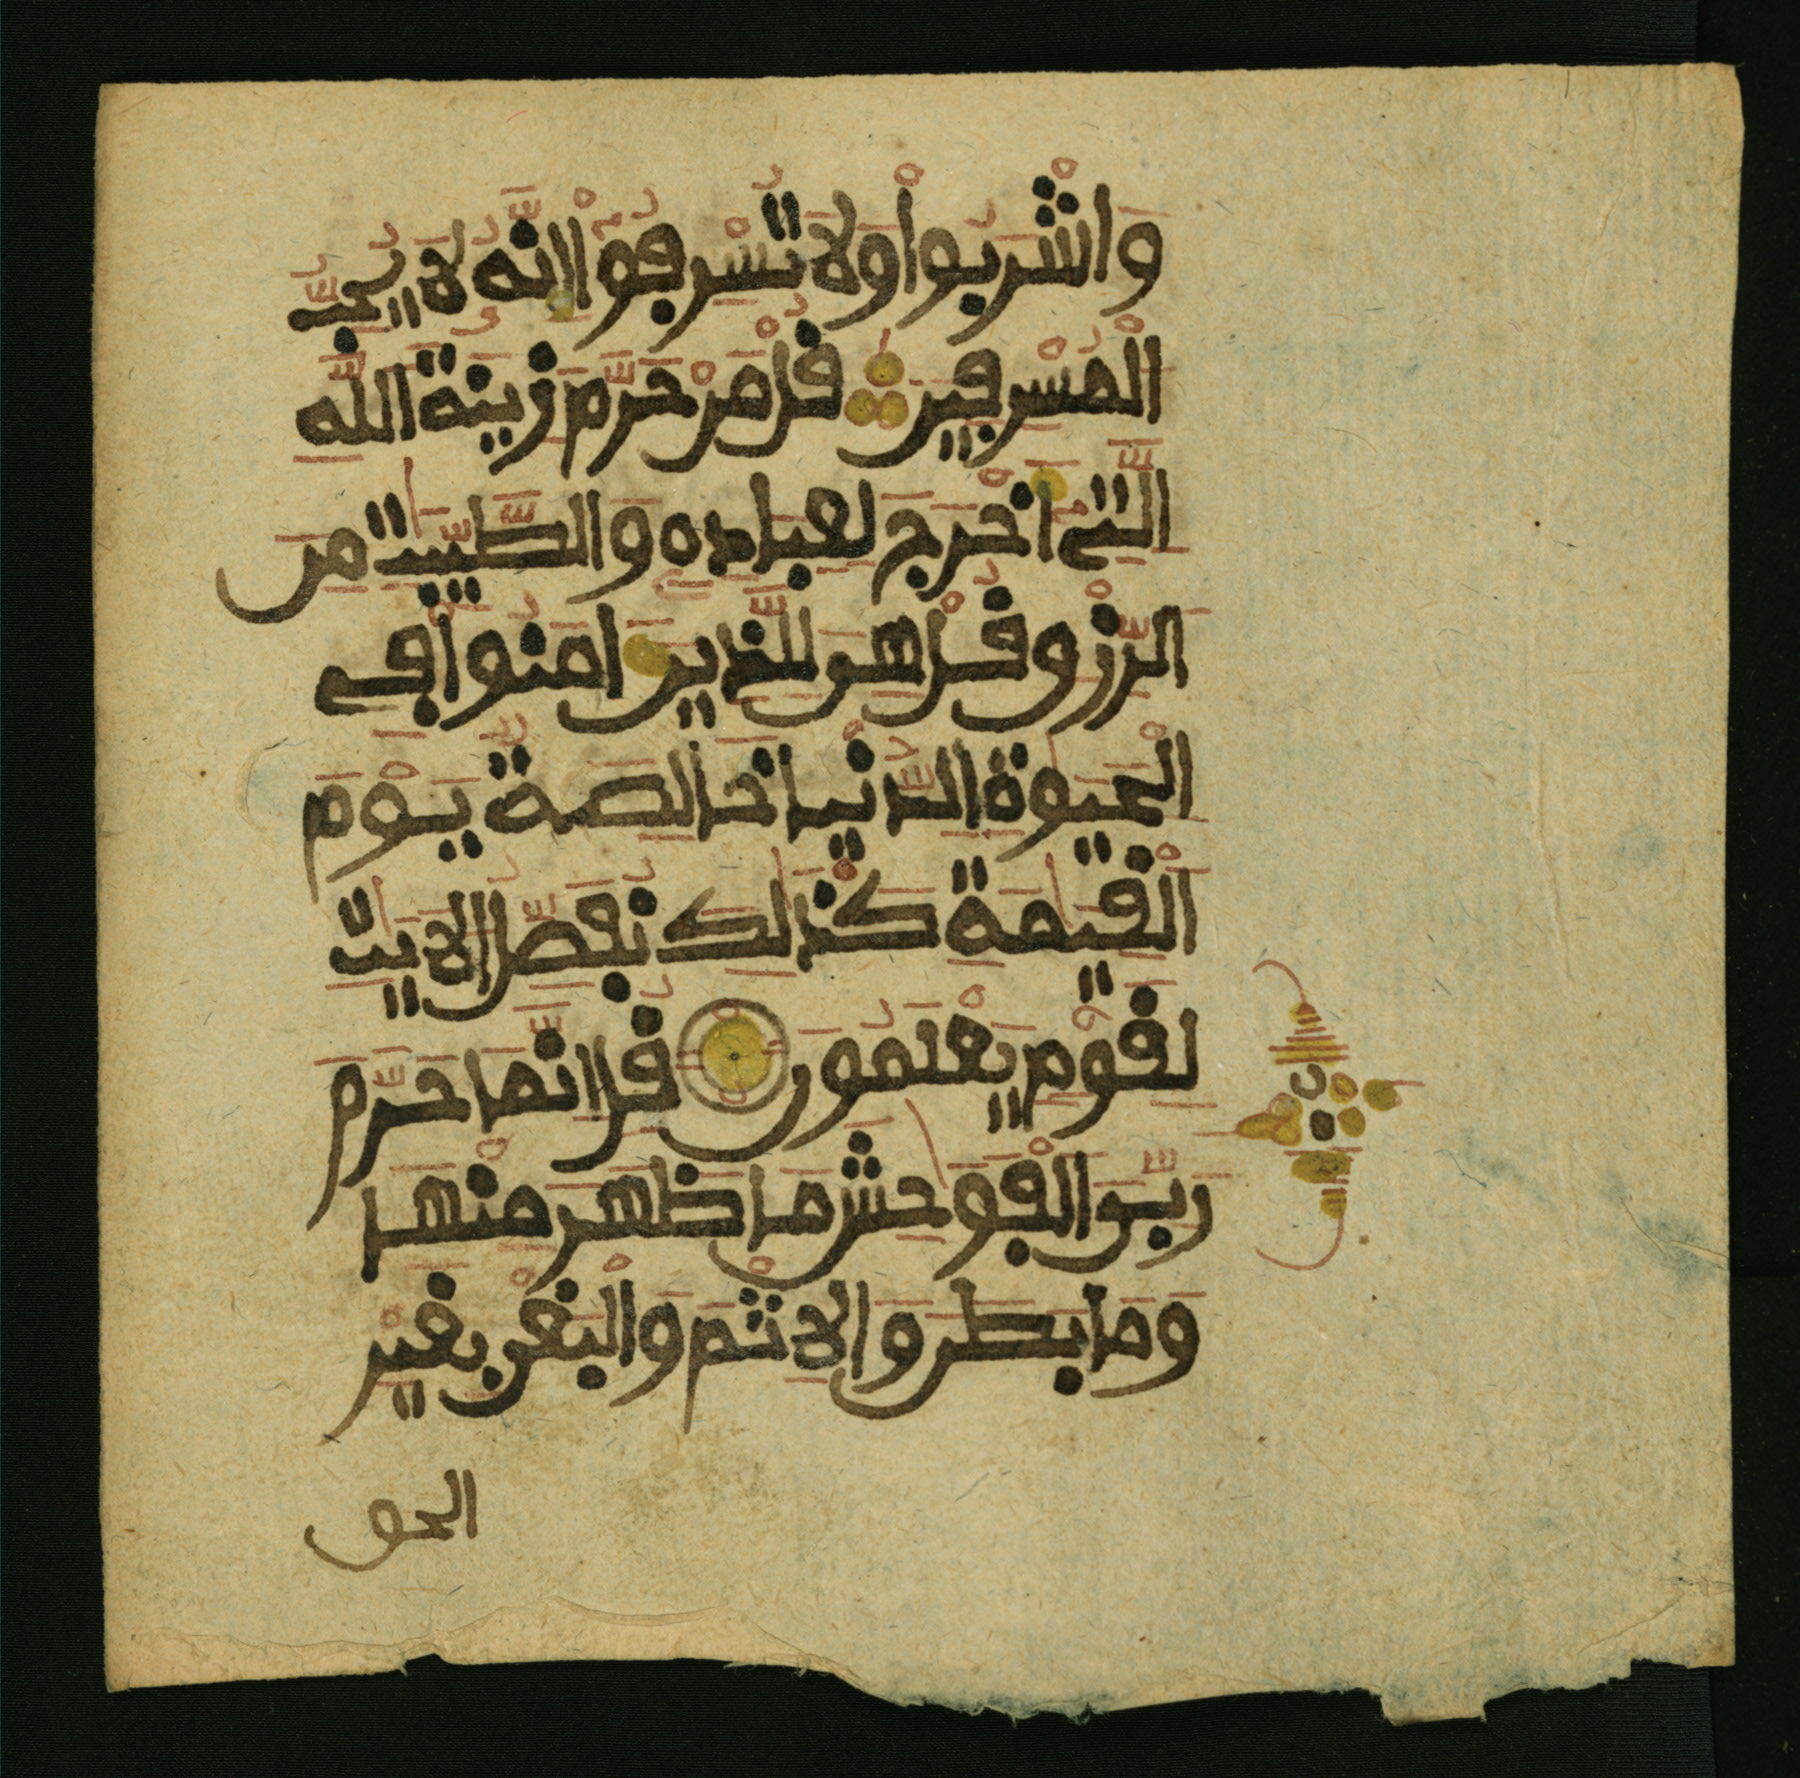 وَاشْرَبُواْ وَلَا تُسْرِفُوٓاْ إِنَّهُۥ لَا يُحِبُّ
الْمُسْرِفِينَ قُلْ مَنْ حَرَّمَ زِينَةَ اللَّهِ
الَّتِےٓ أَخْرَجَ لِعِبَادِهِۦ وَالطَّيِّبَٰتِ مِنَ
الرِّزْقِ قُلْ هِىَ لِلَّذِينَ ءَامَنُواْ فِے
الْحَيَوٰةِ الدُّنْيَا خَالِصَةٌ يَوْمَ
الْقِيَٰمَةِ كَذَٰلِكَ نُفَصِّلُ الْأَيَٰتِ
لِقَوْمٍ يَعْلَمُونَ قُلْ إِنَّمَا حَرَّمَ
رَبِّىَ الْفَوَٰحِشَ مَا ظَهَرَ مِنْهَا
وَمَا بَطَنَ وَالْإِثْمَ وَالْبَغْىَ بِغَيْرِ
الحق